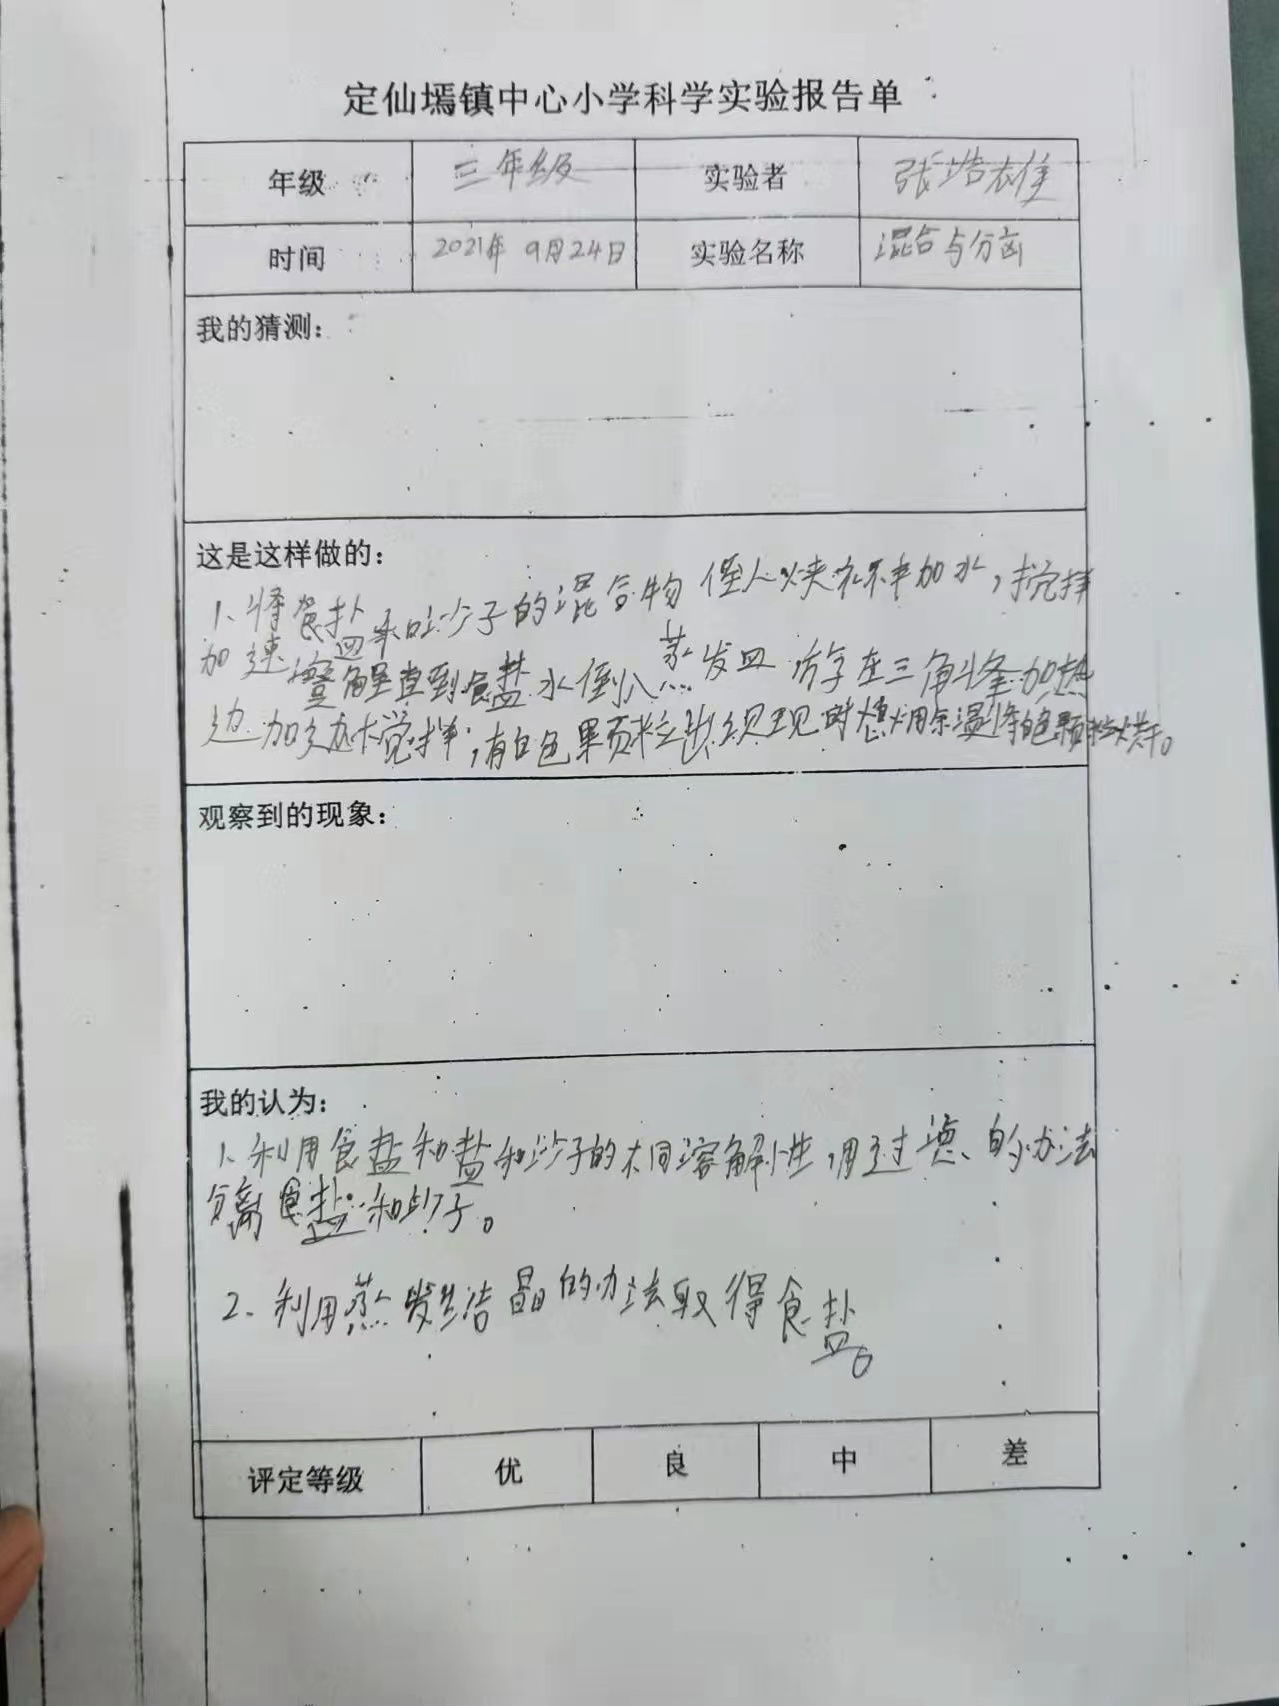 定仙墕镇中心小学科学实验报告单
年级 三年级 实验者 张浩
时间 2021年 9月24日 实验名称 混合与分离
我的猜测：
这是这样做的：
1、将食盐和沙子的混合物 加水，搅拌
加速溶解直到食盐水倒入蒸发皿 放在三角 加热
边加边搅拌，有白色果页粒出现时 用余温将白色颗粒烘干。
观察到的现象：
我的认为：
1、利用食盐和盐和沙子的不同溶解性，用过滤、的办法
分离食盐和沙子。
2、利用蒸发结晶的办法取得食盐。
评定等级 优 良 中 差